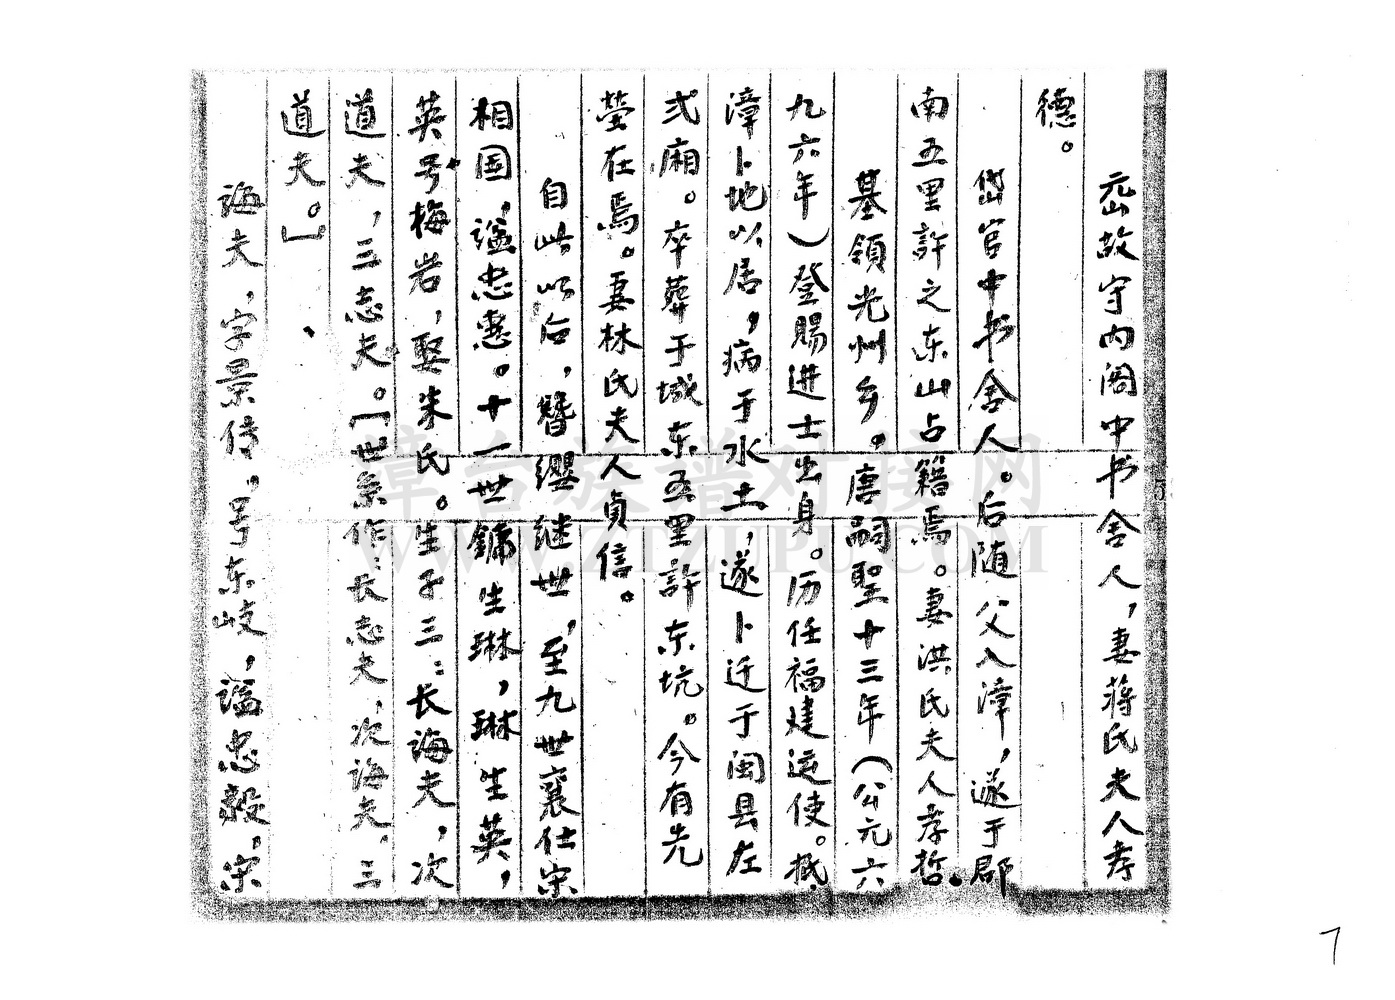 元屾故守内阁中书舍人，妻蒋氏夫人孝
德。
岱官中书舍人。后随父入漳，遂于郡
南五里許之东山占籍焉。妻洪氏夫人孝哲。
基領光州乡。唐嗣聖十三年（公元六
九六年）登賜进士出身。历任福建运使。抵
漳卜地以居，病于水土，遂卜迁于闽县左
弍廂。卒葬于城东五里許东坑。今有先
茔在焉。妻林氏夫人貞信。
自此以后，簪纓继世，至九世襄仕宋
相国，謚忠惠。十一世鏞生琳，琳生英，
英号梅岩，娶朱氏。生子三：长海夫，次
道夫，三志夫。[世系作：长志夫，次海夫，三
道夫。]
海夫，字景，号东岐，謚忠毅，宋
漳台族谱对接网
WWW.ZTZUPU.COM
5
7